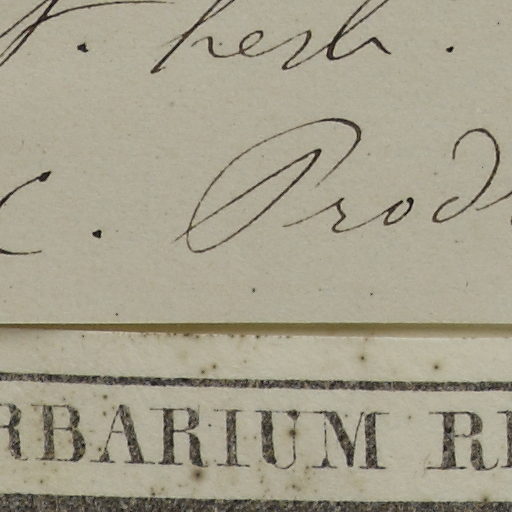 . herb.
c. Prod
RBARIUM R